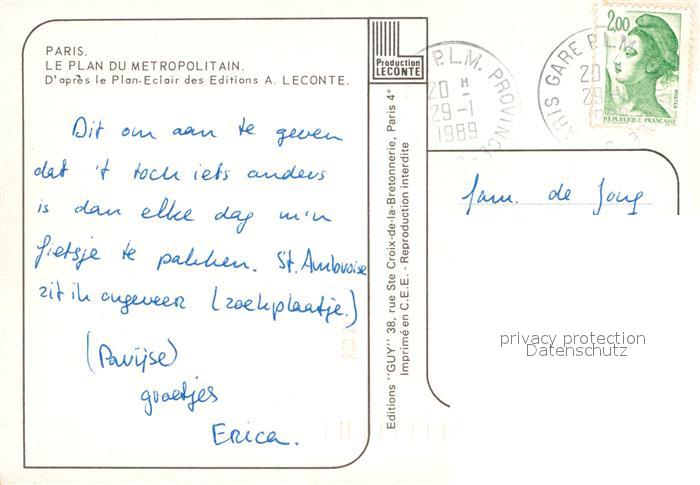 PARIS.
LE PLAN DU METROPOLITAIN.
D'après le Plan-Eclair des Editions A. LECONTE.
Dit om aan te geven
dat 't toch iets anders
is dan elke dag m'n
fietsje te pakken. St. Ambroise
zit ik ongeveer (zoekplaatje.)
(Parijse)
groetjes
Erica.
Production
LECONTE
Editions "GUY" 38, rue Ste Croix-de-la-Bretonnerie, Paris 4e
Imprimé en C.E.E. - Reproduction interdite
P.L.M. PROVINCE
20 H
29-1
1989
PARIS GARE P.L.M.
20
29
2,00
POSTES
REPUBLIQUE FRANÇAISE
Fam. de Jong
privacy protection
Datenschutz